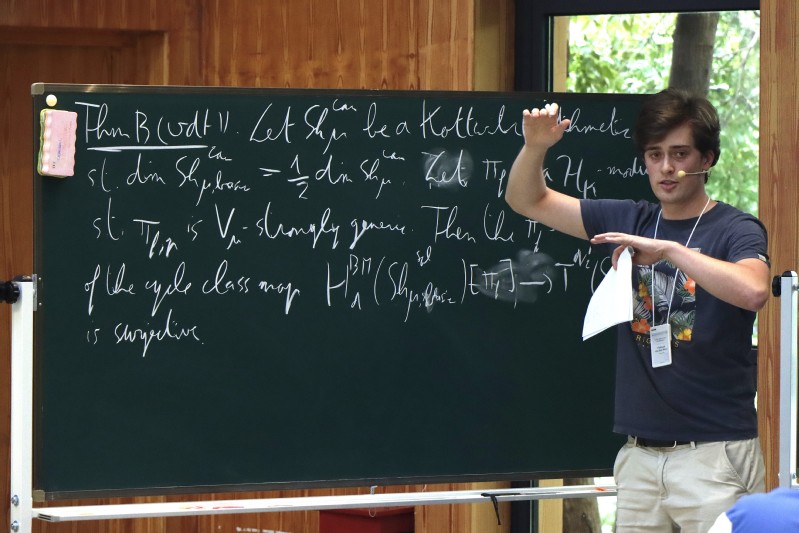 Thm B (vdH). Let Sh_μ^can be a Kottwitz arithmetic
s.t. dim Sh_{μ,basic}^can = 1/2 dim Sh_μ^can. Let π_f H_K-modu
s.t. π_{f,p} is V_μ-strongly generic. Then the π_f-
of the cycle class map H^{BM}(Sh_{μ,basic})[π_f] → T
is surjective.